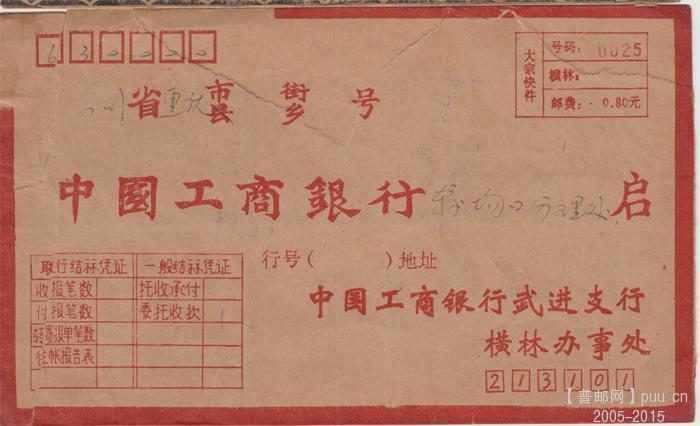 630000
大宗快件
号码：0025
横林：
邮费：0.80元
川省重庆市县 街乡 号
中國工商銀行较场口分理处启
联行结祘凭证 一般结祘凭证
收报笔数 托收承付
付报笔数 委托收款 1
转寄报单笔数
往帐报告表
行号( )地址
中国工商银行武进支行
横林办事处
213101
【普邮网】puu.cn
2005-2015